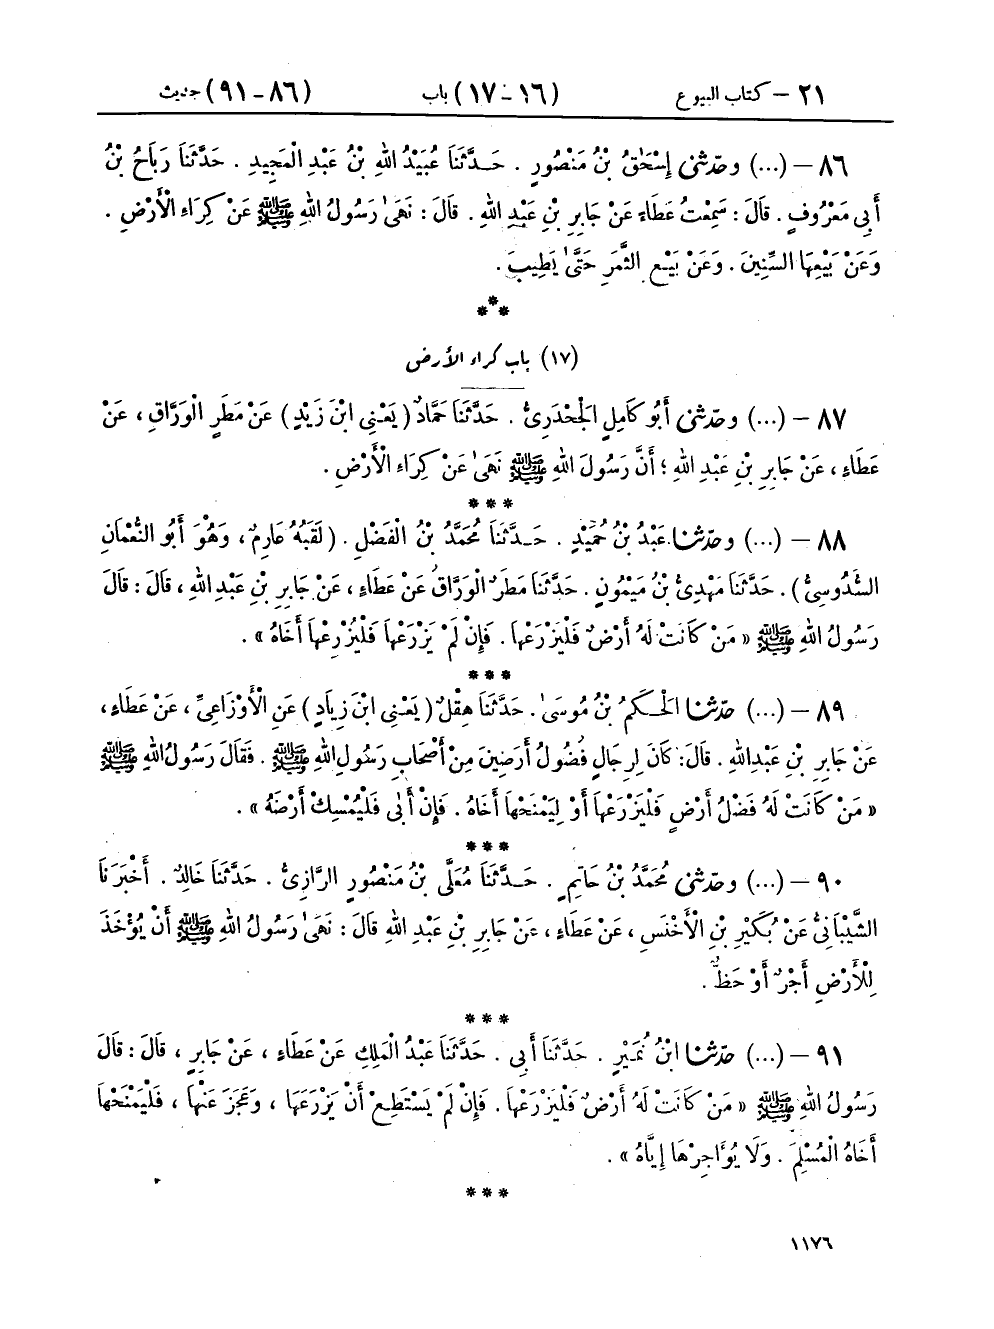 ٢١ – كتاب البيوع (١٦ – ١٧) باب (٨٦ – ٩١) حديث
٨٦ – (...) وحدّثني إِسْحَٰقُ بْنُ مَنْصُورٍ . حَدَّثَنَا عُبَيْدُ اللهِ بْنُ عَبْدِ الْمَجِيدِ . حَدَّثَنَا رَبَاحُ بْنُ
أَبِي مَعْرُوفٍ . قَالَ : سَمِعْتُ عَطَاءً عَنْ جَابِرِ بْنِ عَبْدِ اللهِ . قَالَ : نَهَىٰ رَسُولُ اللهِ ﷺ عَنْ كِرَاءِ الْأَرْضِ .
وَعَنْ بَيْعِهَا السِّنِينَ . وَعَنْ بَيْعِ الثَّمَرِ حَتَّىٰ يَطِيبَ .
***
(١٧) باب كراء الأرض
٨٧ – (...) وحدّثني أَبُو كَامِلٍ الْجَحْدَرِيُّ . حَدَّثَنَا حَمَّادٌ ( يَعْنِي ابْنَ زَيْدٍ ) عَنْ مَطَرٍ الْوَرَّاقِ ، عَنْ
عَطَاءٍ ، عَنْ جَابِرِ بْنِ عَبْدِ اللهِ ؛ أَنَّ رَسُولَ اللهِ ﷺ نَهَىٰ عَنْ كِرَاءِ الْأَرْضِ .
***
٨٨ – (...) وحدّثنا عَبْدُ بْنُ حُمَيْدٍ . حَدَّثَنَا مُحَمَّدُ بْنُ الْفَضْلِ . ( لَقَبُهُ عَارِمٌ ، وَهُوَ أَبُو النُّعْمَانِ
السَّدُوسِيُّ ) . حَدَّثَنَا مَهْدِيُّ بْنُ مَيْمُونٍ . حَدَّثَنَا مَطَرٌ الْوَرَّاقُ عَنْ عَطَاءٍ ، عَنْ جَابِرِ بْنِ عَبْدِ اللهِ ، قَالَ : قَالَ
رَسُولُ اللهِ ﷺ « مَنْ كَانَتْ لَهُ أَرْضٌ فَلْيَزْرَعْهَا . فَإِنْ لَمْ يَزْرَعْهَا فَلْيُزْرِعْهَا أَخَاهُ » .
***
٨٩ – (...) حدّثنا الْحَكَمُ بْنُ مُوسَىٰ . حَدَّثَنَا هِقْلٌ ( يَعْنِي ابْنَ زِيَادٍ ) عَنِ الْأَوْزَاعِيِّ ، عَنْ عَطَاءٍ ،
عَنْ جَابِرِ بْنِ عَبْدِ اللهِ . قَالَ : كَانَ لِرِجَالٍ فُضُولُ أَرَضِينَ مِنْ أَصْحَابِ رَسُولِ اللهِ ﷺ . فَقَالَ رَسُولُ اللهِ ﷺ
« مَنْ كَانَتْ لَهُ فَضْلُ أَرْضٍ فَلْيَزْرَعْهَا أَوْ لِيَمْنَحْهَا أَخَاهُ . فَإِنْ أَبَىٰ فَلْيُمْسِكْ أَرْضَهُ » .
***
٩٠ – (...) وحدّثني مُحَمَّدُ بْنُ حَاتِمٍ . حَدَّثَنَا مُعَلَّى بْنُ مَنْصُورٍ الرَّازِيُّ . حَدَّثَنَا خَالِدٌ . أَخْبَرَنَا
الشَّيْبَانِيُّ عَنْ بُكَيْرِ بْنِ الْأَخْنَسِ ، عَنْ عَطَاءٍ ، عَنْ جَابِرِ بْنِ عَبْدِ اللهِ قَالَ : نَهَىٰ رَسُولُ اللهِ ﷺ أَنْ يُؤْخَذَ
لِلْأَرْضِ أَجْرٌ أَوْ حَظٌّ .
***
٩١ – (...) حدّثنا ابْنُ نُمَيْرٍ . حَدَّثَنَا أَبِي . حَدَّثَنَا عَبْدُ الْمَلِكِ عَنْ عَطَاءٍ ، عَنْ جَابِرٍ ، قَالَ : قَالَ
رَسُولُ اللهِ ﷺ « مَنْ كَانَتْ لَهُ أَرْضٌ فَلْيَزْرَعْهَا . فَإِنْ لَمْ يَسْتَطِعْ أَنْ يَزْرَعَهَا ، وَعَجَزَ عَنْهَا ، فَلْيَمْنَحْهَا
أَخَاهُ الْمُسْلِمَ . وَلَا يُؤَاجِرْهَا إِيَّاهُ » .
***
١١٧٦